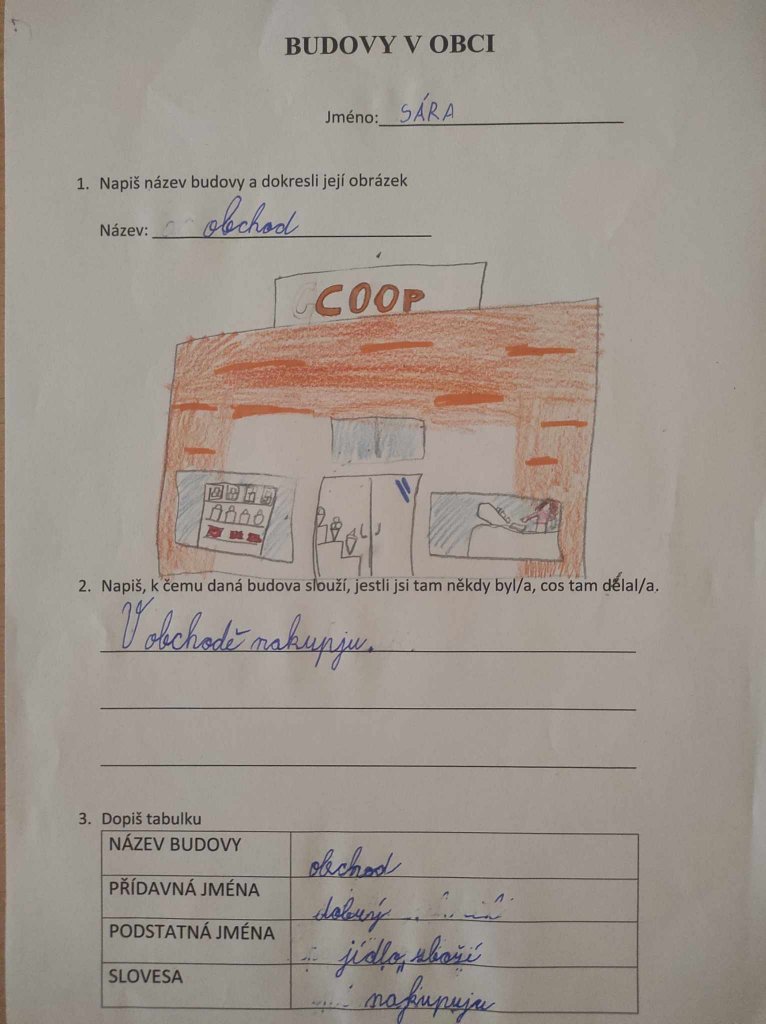 BUDOVY V OBCI
Jméno: SÁRA
1. Napiš název budovy a dokresli její obrázek
Název: obchod
COOP
2. Napiš, k čemu daná budova slouží, jestli jsi tam někdy byl/a, cos tam dělal/a.
V obchodě nakupju.
3. Dopiš tabulku
NÁZEV BUDOVY obchod
PŘÍDAVNÁ JMÉNA dobrý
PODSTATNÁ JMÉNA jídlo, zboží
SLOVESA nakupuju